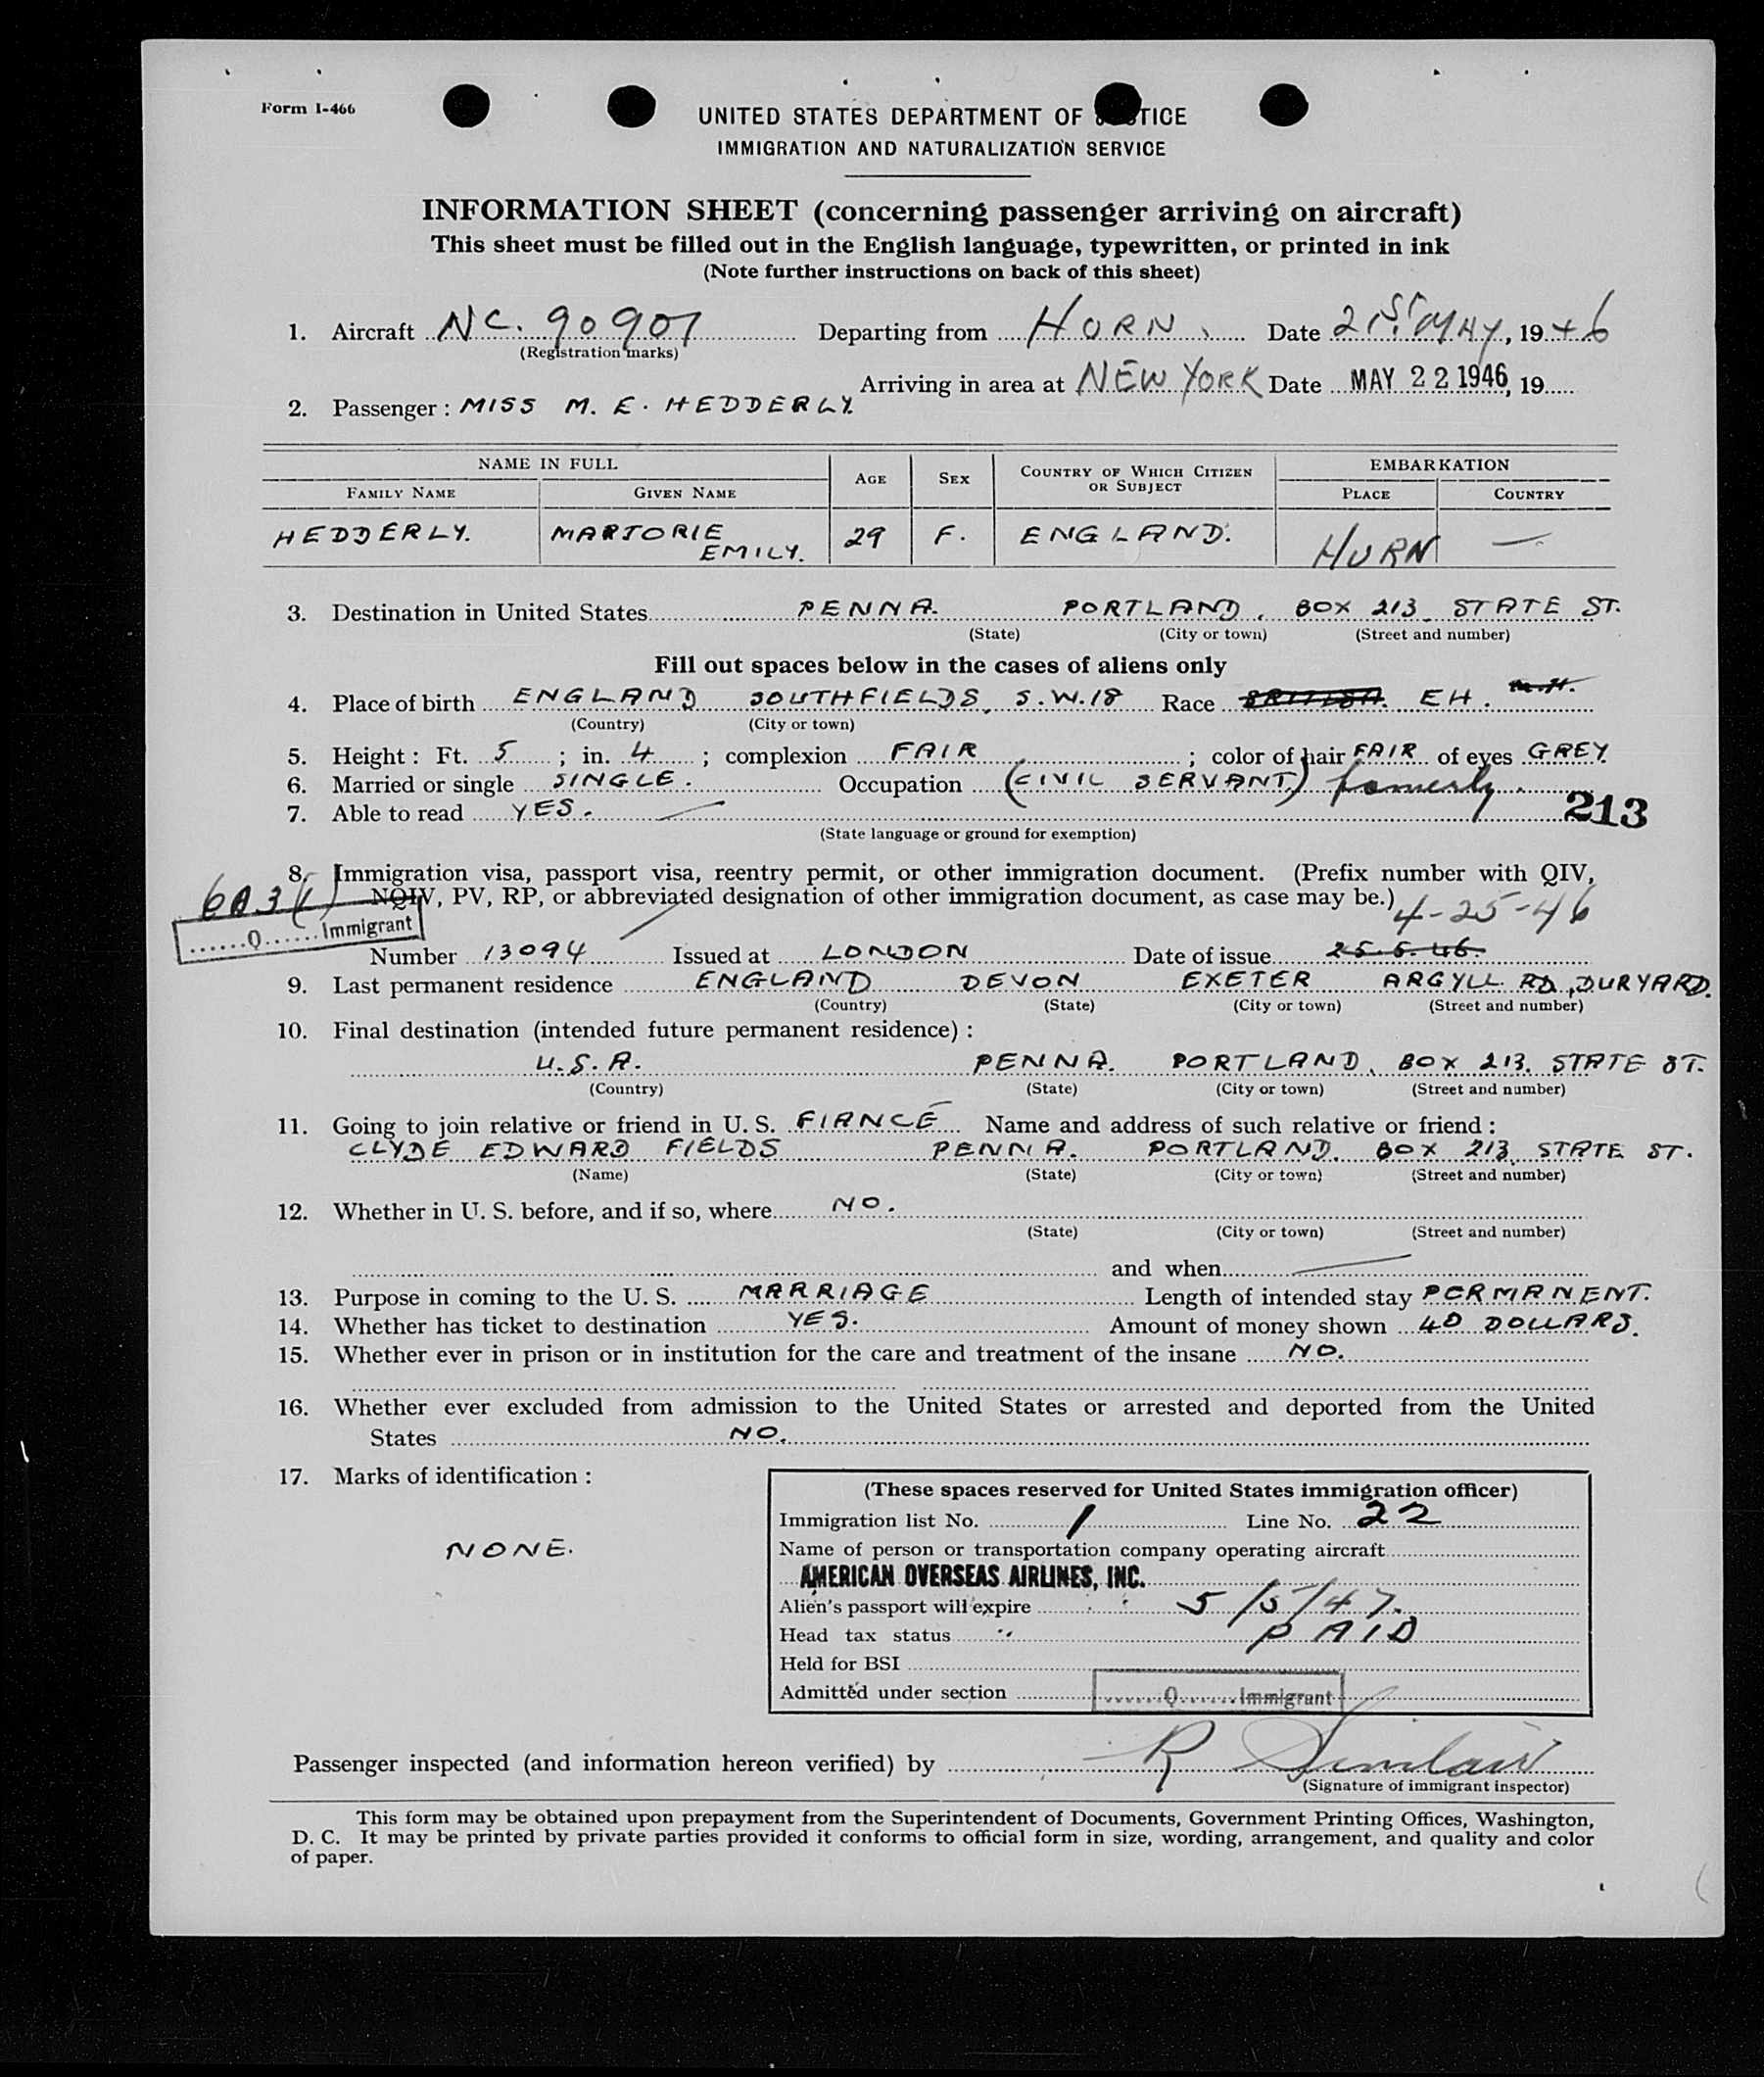 Form I-466
UNITED STATES DEPARTMENT OF JUSTICE
IMMIGRATION AND NATURALIZATION SERVICE
INFORMATION SHEET (concerning passenger arriving on aircraft)
This sheet must be filled out in the English language, typewritten, or printed in ink
(Note further instructions on back of this sheet)
1. Aircraft NC. 90907 Departing from HURN, Date 21ST MAY, 1946
(Registration marks)
Arriving in area at NEW YORK Date MAY 22 1946, 19
2. Passenger: MISS M. E. HEDDERLY.
NAME IN FULL AGE SEX COUNTRY OF WHICH CITIZEN OR SUBJECT EMBARKATION
FAMILY NAME GIVEN NAME PLACE COUNTRY
HEDDERLY. MARJORIE EMILY. 29 F. ENGLAND. HURN —
3. Destination in United States PENNA. PORTLAND, BOX 213, STATE ST.
(State) (City or town) (Street and number)
Fill out spaces below in the cases of aliens only
4. Place of birth ENGLAND SOUTHFIELDS, S.W.18 Race BRITISH. EH. M.H.
(Country) (City or town)
5. Height: Ft. 5; in. 4; complexion FAIR; color of hair FAIR of eyes GREY.
6. Married or single SINGLE. Occupation (CIVIL SERVANT.) formerly.
7. Able to read YES.
213
(State language or ground for exemption)
8. Immigration visa, passport visa, reentry permit, or other immigration document. (Prefix number with QIV,
NQIV, PV, RP, or abbreviated designation of other immigration document, as case may be.)
4-25-46
Q Immigrant
Number 13094 Issued at LONDON Date of issue 25.5.46.
9. Last permanent residence ENGLAND DEVON EXETER ARGYLL RD., DURYARD.
(Country) (State) (City or town) (Street and number)
10. Final destination (intended future permanent residence):
U.S.A. PENNA. PORTLAND, BOX 213, STATE ST.
(Country) (State) (City or town) (Street and number)
11. Going to join relative or friend in U. S. FIANCÉ Name and address of such relative or friend:
CLYDE EDWARD FIELDS PENNA. PORTLAND, BOX 213, STATE ST.
(Name) (State) (City or town) (Street and number)
12. Whether in U. S. before, and if so, where NO.
(State) (City or town) (Street and number)
and when
13. Purpose in coming to the U. S. MARRIAGE Length of intended stay PERMANENT.
14. Whether has ticket to destination YES. Amount of money shown 40 DOLLARS.
15. Whether ever in prison or in institution for the care and treatment of the insane NO.
16. Whether ever excluded from admission to the United States or arrested and deported from the United
States NO.
17. Marks of identification:
NONE.
(These spaces reserved for United States immigration officer)
Immigration list No. 1 Line No. 22
Name of person or transportation company operating aircraft
AMERICAN OVERSEAS AIRLINES, INC.
Alien's passport will expire 5/5/47.
Head tax status PAID
Held for BSI
Admitted under section Q Immigrant
Passenger inspected (and information hereon verified) by R Sinclair
(Signature of immigrant inspector)
This form may be obtained upon prepayment from the Superintendent of Documents, Government Printing Offices, Washington,
D. C. It may be printed by private parties provided it conforms to official form in size, wording, arrangement, and quality and color
of paper.